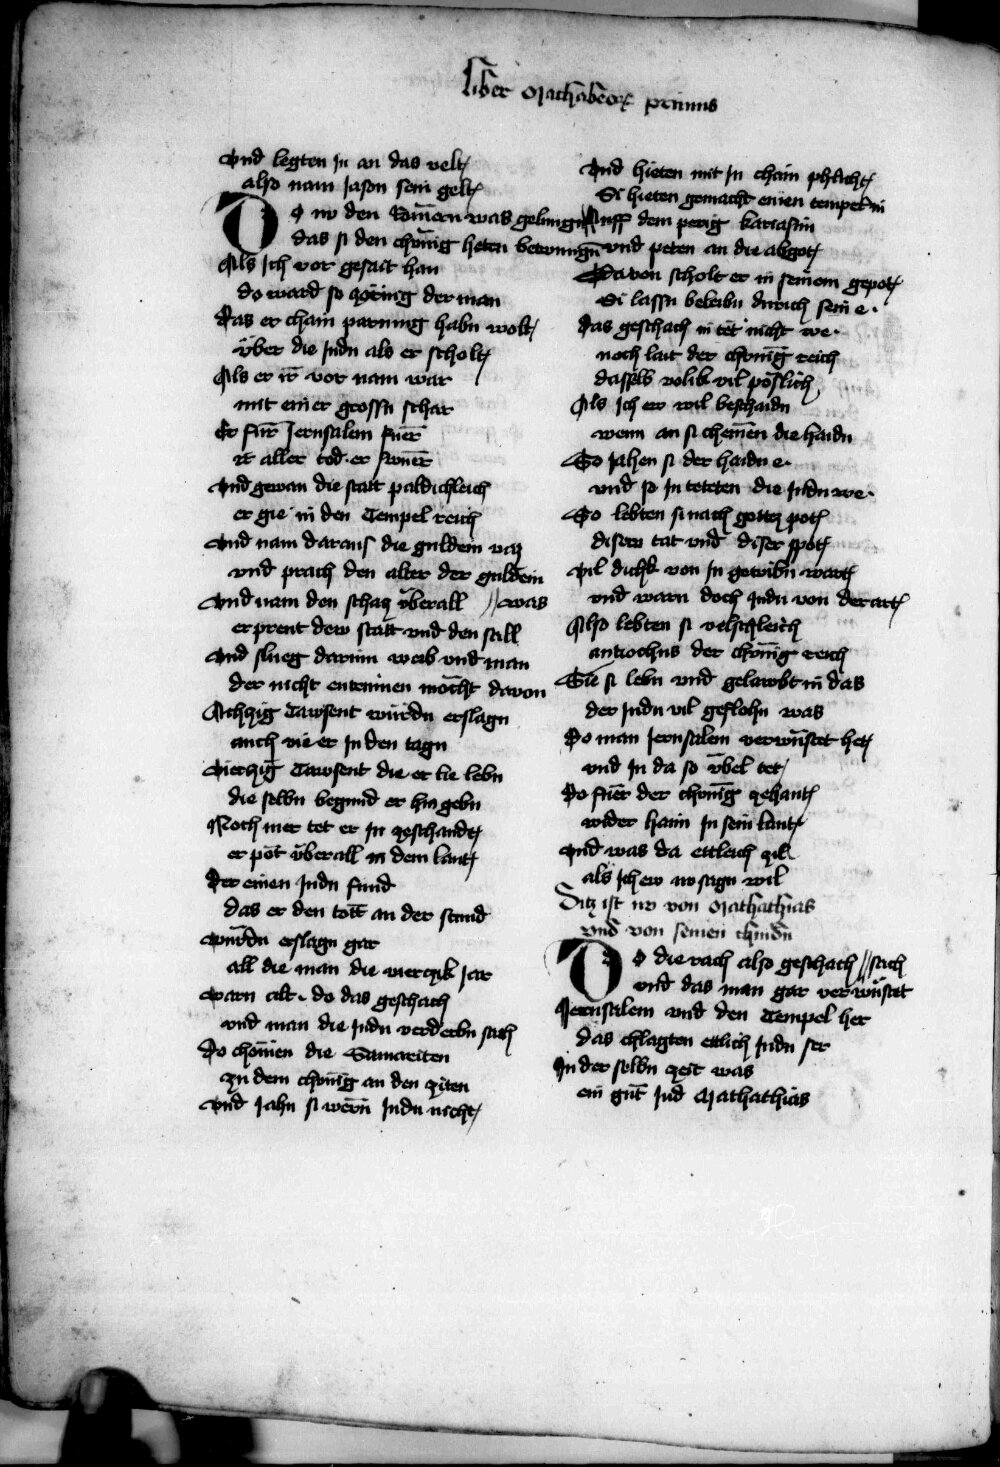 Liber Machabeorum primus
Vnd legten in an das velt
also nam Jason sein gelt
Do nv den Romern was gelungn
das si den chönig heten betwungn
Als ich vor gesait han
do ward so zörnig der man
Das er chain parnung habn wolt
über die Judn als er scholt
Als er ir vor nam war
mit einer grossn schar
Er fur Jerusalem
ir aller tod er swuer
Vnd gewan die stat paldichleich
er gie in den Tempel reich
Vnd nam daraus die guldein vaz
vnd prach den alter der guldein was
Vnd nam den schatz überall
er prent dew stat vnd den sall
Vnd slueg darinn weib vnd man
der nicht entrinnen möcht davon
Achzig Tawsent würdn erslagn
auch vie er in den tagn
Vierzig Tawsent die er lie lebn
die selbn begund er hin gebn
Noch mer tet er in ze schandt
er pot überall in dem lant
Der einen Judn fund
das er den tött an der stund
Würdn erslagn gar
all die man die vierzik jar
Warn alt. do das geschach
vnd man die Judn verderbn sach
Do chömen die Samariten
zu dem chönig an den ziten
Vnd jahn si wern Judn nicht
Vnd hieten mit in chain phlicht
Si hieten gemacht einen tempel in
Auff dem perig Kariasim
vnd peten an die abgot
Davon scholt er in seinem gepot
Si lassn beleibn durich sein e.
Das geschach in tet nicht we.
noch laut der chönig reich
dasselb volik vil pöslich
Als ich ew wil beschaidn
wenn an si chemen die haidn
So jahen si der haidn e.
vnd so in teteten die Judn we.
So lebten si nach gottz pot
disew tat vnd diser spot
Vil dickh von in getribn wart
vnd warn doch Judn von der art
Also lebten si velschleich
antiochus der chönig reich
Lie si lebn vnd gelawbt in das
der Judn vil geflohn was
Do man Jerusalem verwüstet het
vnd in da so übel tet
Do fuer der chönig zehant
wider haim in sein lant
Vnd was da ettleich zil
als ich ew nv sagn wil
Ditz ist nv von Mathathias
vnd von seinen chindn
Do die rach also geschach
vnd das man gar verwüstet sach
Jerusalem vnd den Tempel her
das chlagten ettlich Judn ser
In der selbn zeit was
ein gut Jud Mathathias